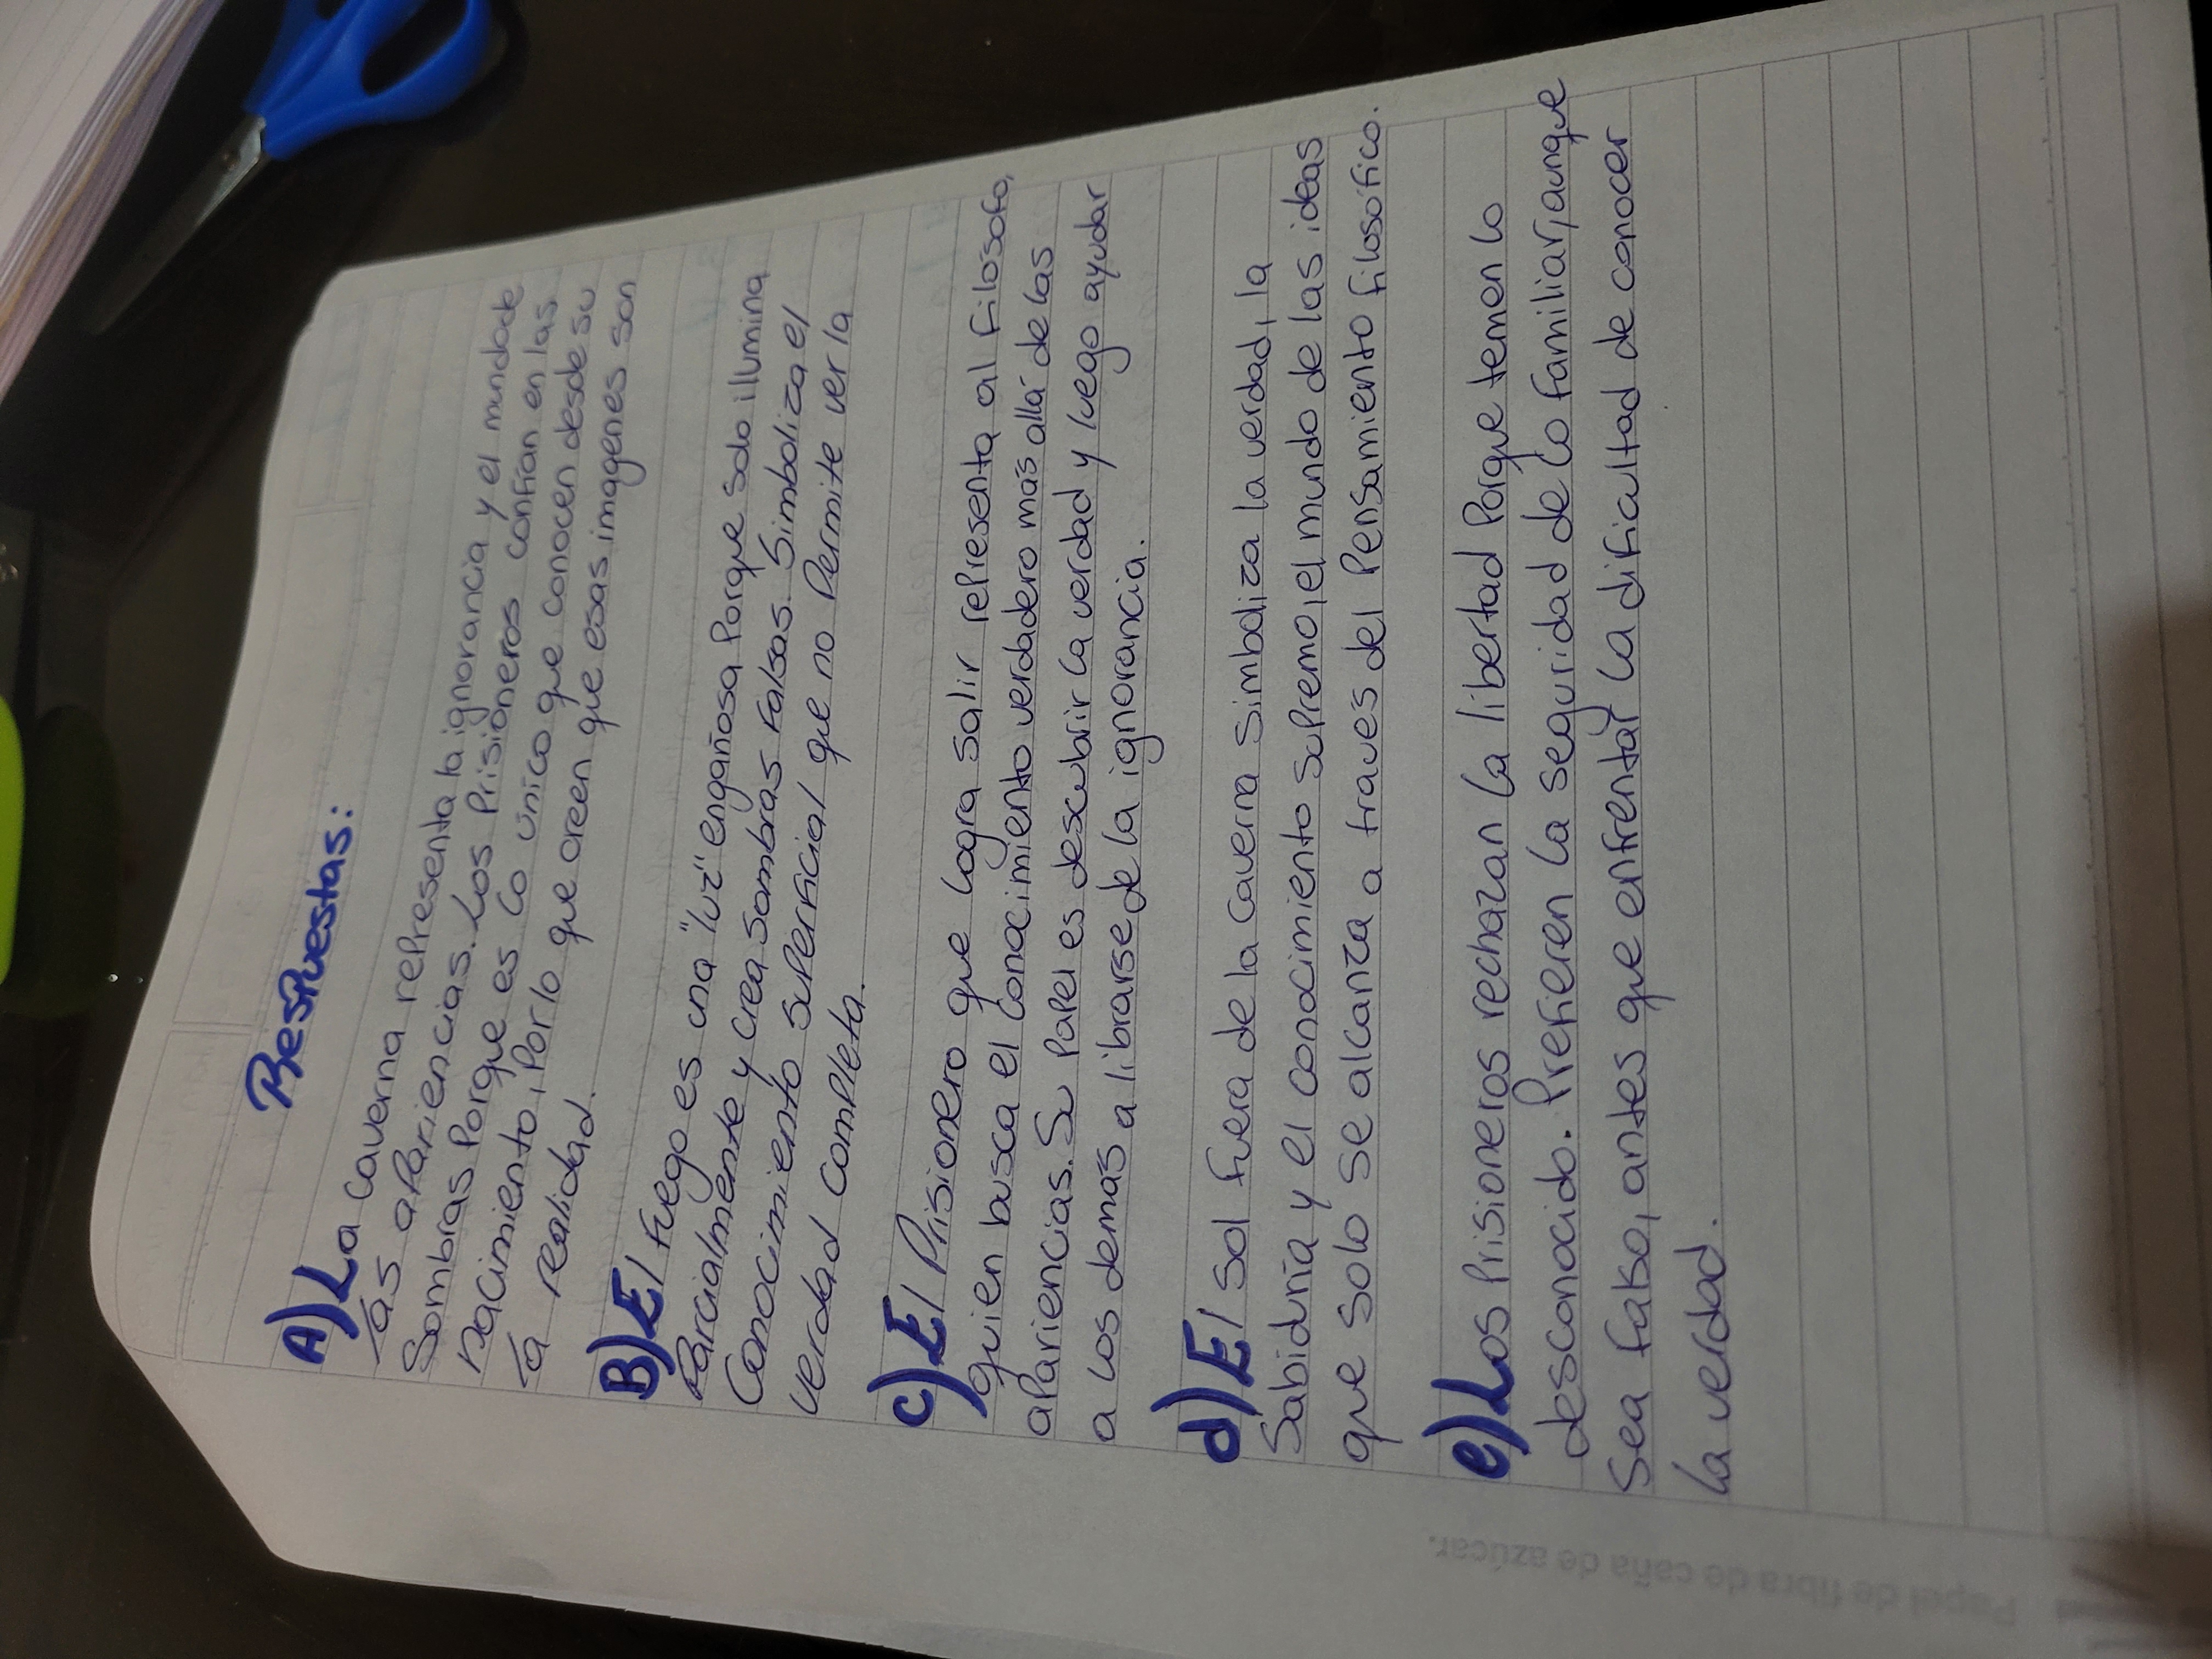 Respuestas:
A) La caverna representa la ignorancia y el mundo de
las apariencias. Los Prisioneros confían en las
Sombras Porque es lo único que conocen desde su
nacimiento, Por lo que creen que esas imagenes son
la realidad.
B) El fuego es una "luz" engañosa Porque solo illumina
Parcialmente y crea sombras falsas. Simboliza el
Conocimiento superficial que no Permite ver la
verdad completa.
C) El Prisionero que logra salir representa al filosofo,
quien busca el conocimiento verdadero más allá de las
apariencias. Su Papel es descubrir la verdad y luego ayudar
a los demás a librarse de la ignorancia.
d) El sol fuera de la caverna simboliza la verdad, la
Sabiduría y el conocimiento supremo, el mundo de las ideas
que solo se alcanza a traves del Pensamiento filosófico.
e) Los Prisioneros rechazan la libertad Porque temen lo
desconocido. Prefieren la seguridad de lo familiar, aunque
Sea falso, antes que enfrentar la dificultad de conocer
la verdad.
Papel de fibra de caña de azúcar.